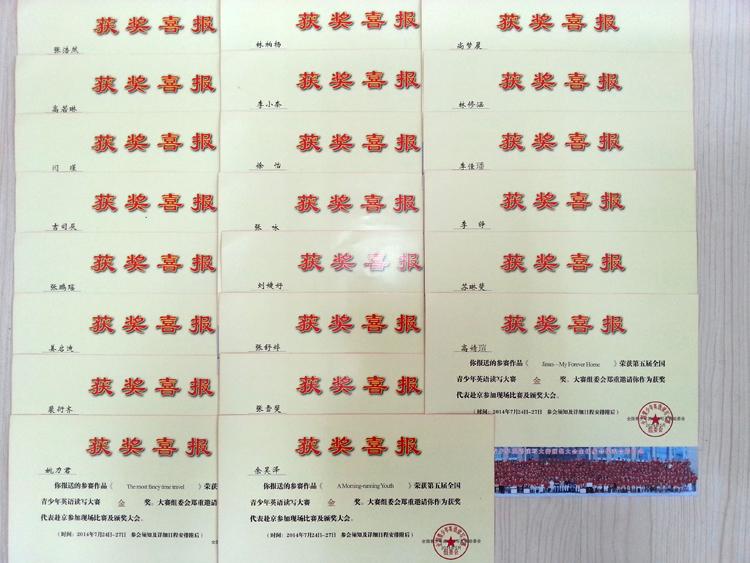 获奖喜报
张浩然
获奖喜报
高若琳
获奖喜报
闫瑾
获奖喜报
吉司辰
获奖喜报
张鹏瑶
获奖喜报
姜启汶
获奖喜报
裴衍齐
获奖喜报
姚力君
你报送的参赛作品《 The most fancy time travel 》荣获第五届全国
青少年英语读写大赛 金 奖。大赛组委会郑重邀请你作为获奖
代表赴京参加现场比赛及颁奖大会。
（时间：2014年7月24日-27日 参会须知及详细日程安排附后）
获奖喜报
林柏杨
获奖喜报
李小奈
获奖喜报
徐怡
获奖喜报
张咏
获奖喜报
刘婕妤
获奖喜报
张舒婷
获奖喜报
张晋斐
获奖喜报
余昊泽
你报送的参赛作品《 A Morning-running Youth 》荣获第五届全国
青少年英语读写大赛 金 奖。大赛组委会郑重邀请你作为获奖
代表赴京参加现场比赛及颁奖大会。
（时间：2014年7月24日-27日 参会须知及详细日程安排附后）
获奖喜报
尚梦晨
获奖喜报
林修涵
获奖喜报
李佳璠
获奖喜报
李铮
获奖喜报
苏琳斐
获奖喜报
高婧瑄
你报送的参赛作品《 Jinan—My Forever Home 》荣获第五届全国
青少年英语读写大赛 金 奖。大赛组委会郑重邀请你作为获奖
代表赴京参加现场比赛及颁奖大会。
（时间：2014年7月24日-27日 参会须知及详细日程安排附后）